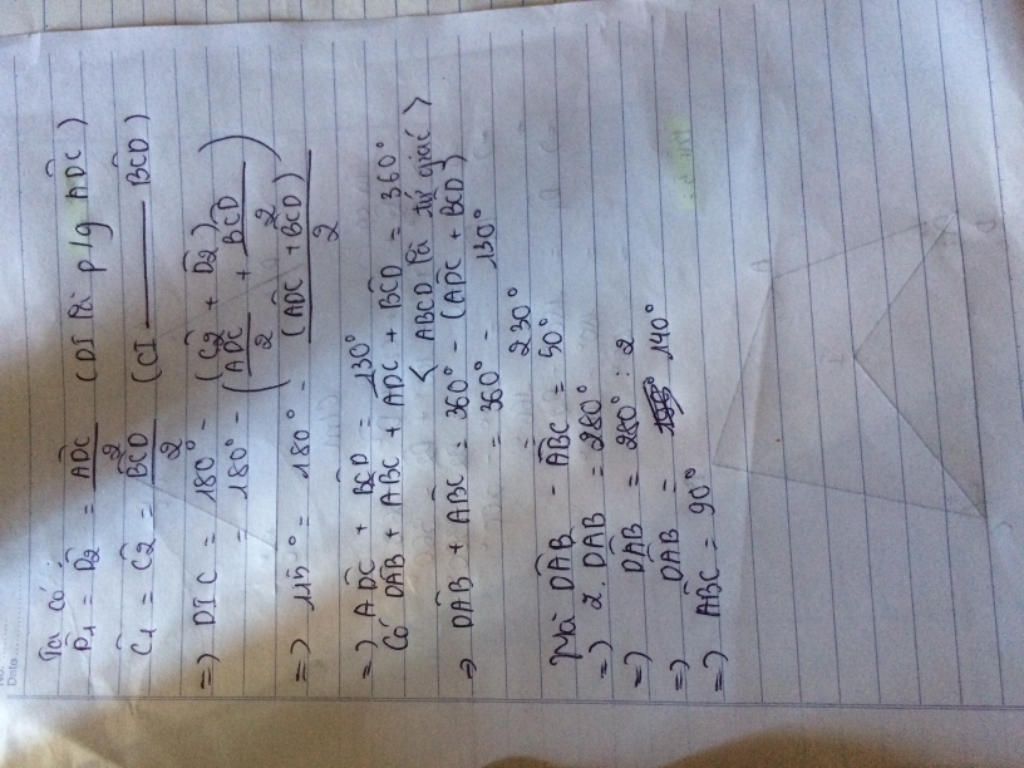 No.
Date
Ta có:
D̂1 = D̂2 = ADC/2 (DI là p/g ADC)
Ĉ1 = Ĉ2 = BCD/2 (CI ——— BCD)
=) DIC = 180° - (Ĉ2 + D̂2)
= 180° - (ADC/2 + BCD/2)
=) 115° = 180° - (ADC + BCD)/2
=) ADC + BCD = 130°
Có DAB + ABC + ADC + BCD = 360°
< ABCD là tứ giác >
=> DAB + ABC = 360° - (ADC + BCD)
= 360° - 130°
230°
Mà DAB - ABC = 50°
=) 2. DAB = 280°
=) DAB = 280° : 2
=) DAB = 140°
=) ABC = 90°